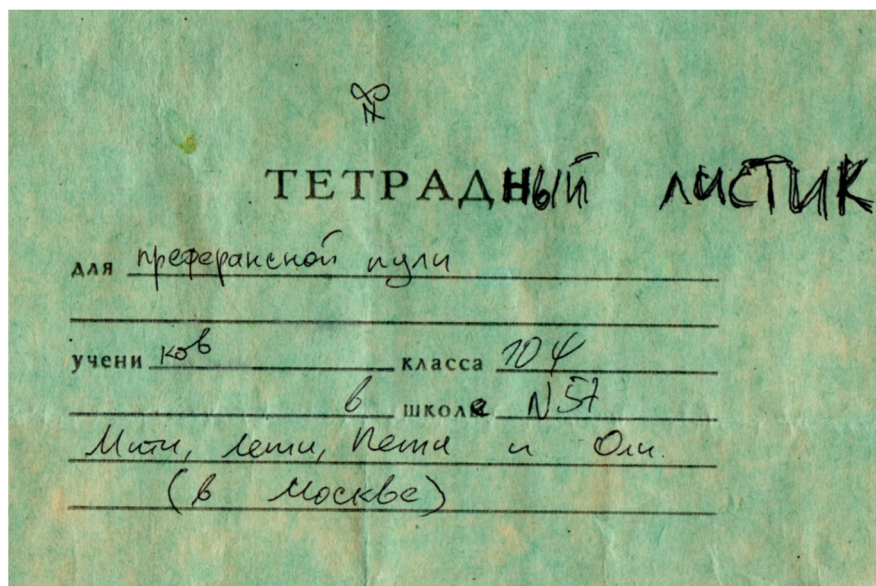 ТЕТРАДНЫЙ ЛИСТИК
для преферансной пули
учени ков класса 10
в школе N 57
Мити, Лёти, Пети и Оли.
(в Москве)